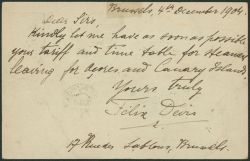 Brussels, 4th December 1904.
Dear Sirs,
Kindly let me have as soon as possible
your tariff and time table for steamers
leaving for Açores and Canary Islands.
Yours truly
Félix
Sablons, Brussels.